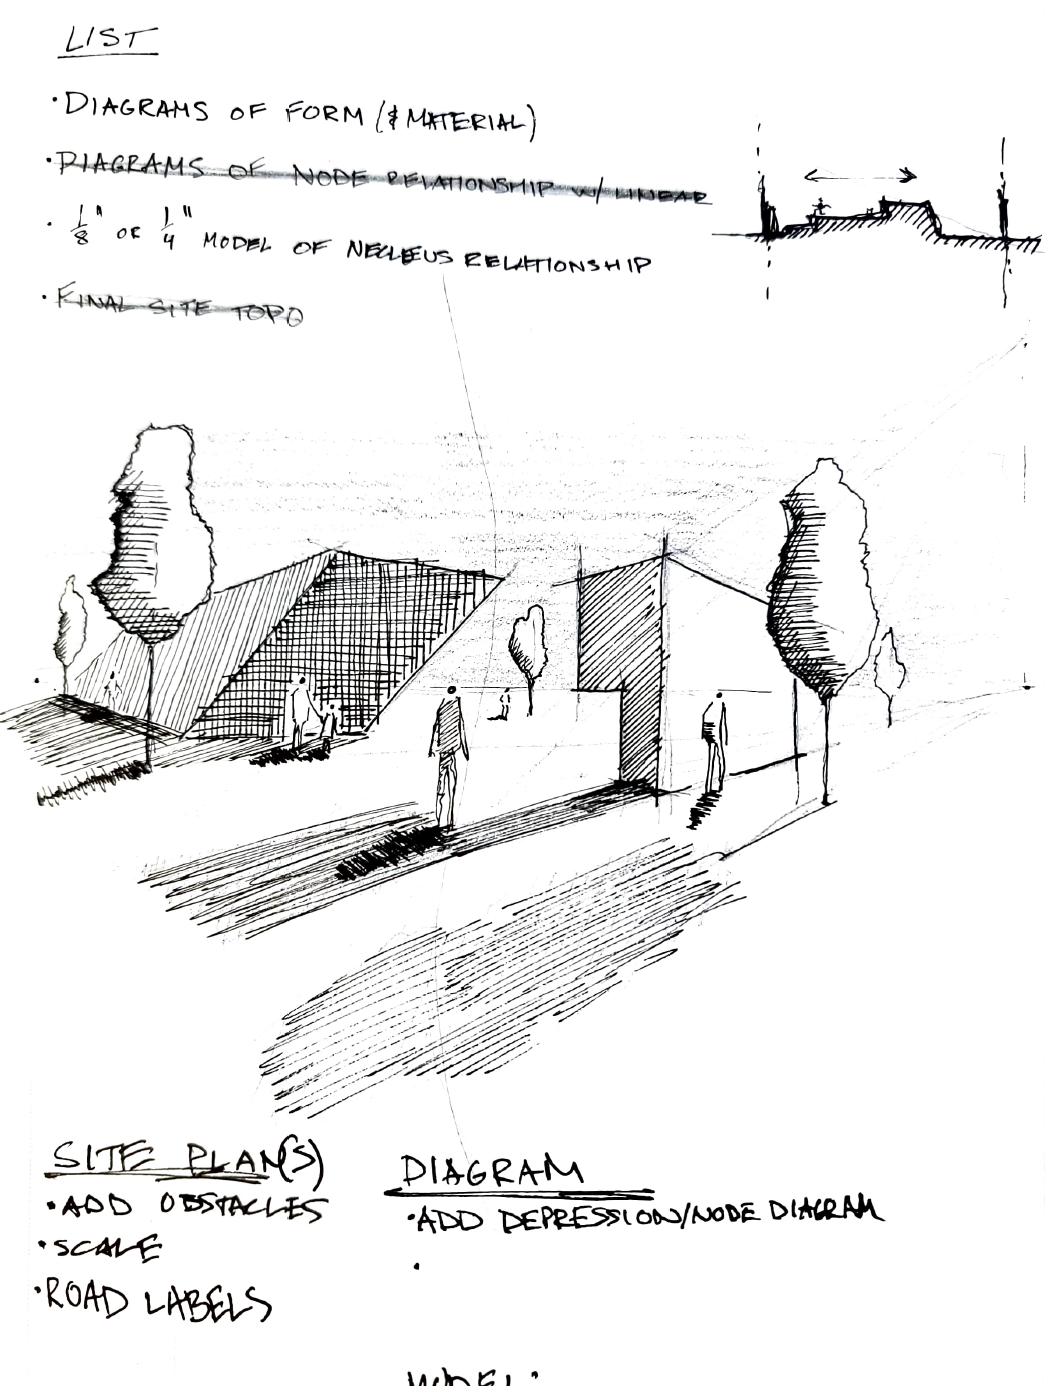 LIST
• DIAGRAMS OF FORM (& MATERIAL)
• DIAGRAMS OF NODE RELATIONSHIP W/ LINEAR
• 1/8" OR 1/4" MODEL OF NECLEUS RELATIONSHIP
• FINAL SITE TOPO
SITE PLAN(S)
• ADD OBSTACLES
• SCALE
• ROAD LABELS
DIAGRAM
• ADD DEPRESSION/NODE DIAGRAM
•
MODEL: